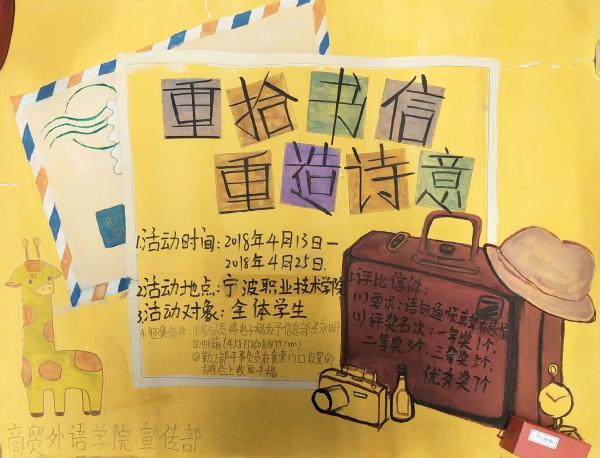 重拾书信
重造诗意
1.活动时间：2018年4月13日—
2018年4月25日.
2活动地点：宁波职业技术学院
3活动对象：全体学生
4.征集信件：
的邮箱
商贸外语学院宣传部
评比信件：
(1)要求：语句通
(2)评奖名次：一等奖1个，
二等奖3个，三等奖5个，
优秀奖7个